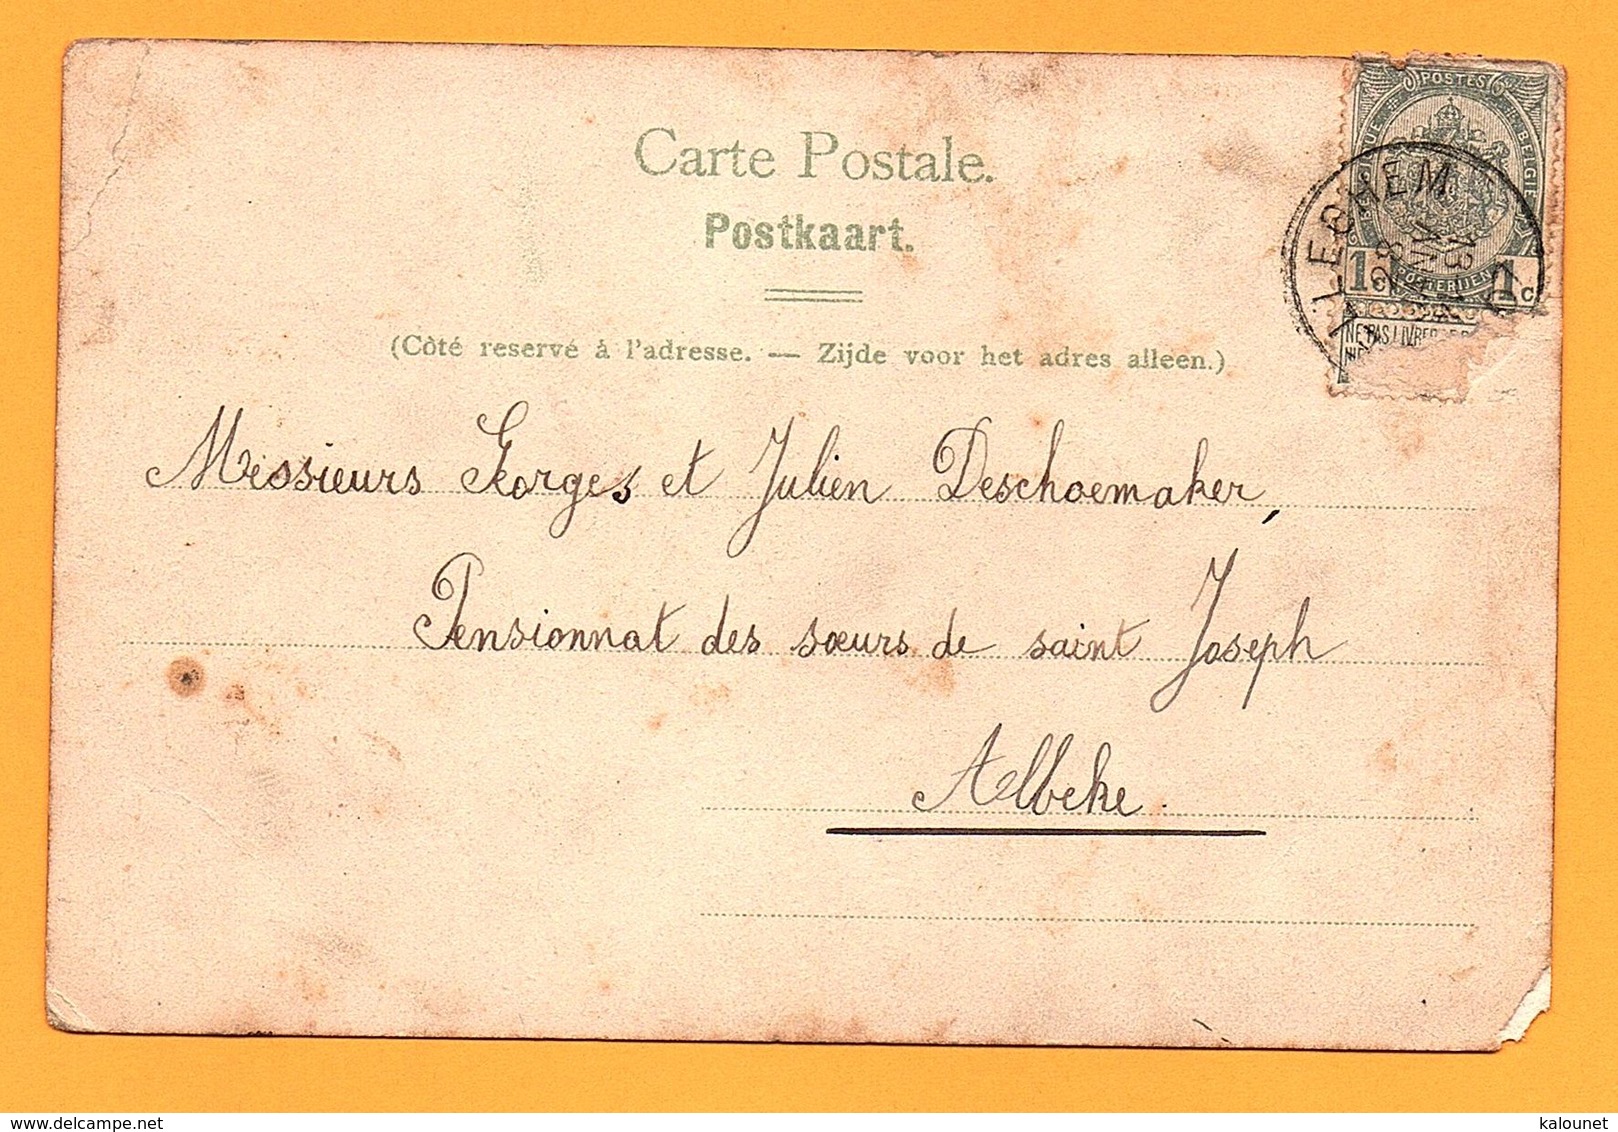 POSTES
BELGIE
1c 1c
POSTERIJEN
NE PAS LIVRER
Carte Postale.
Postkaart.
(Côté reservé à l'adresse. — Zijde voor het adres alleen.)
Messieurs Georges et Julien Deschoemaker,
Pensionnat des sœurs de saint Joseph
Aelbeke.
delcampe.net
kalounet